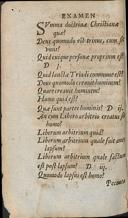 EXAMEN
SVmma doctrinæ Christianæ
quæ?
Deus quomodo est trinus, cum sit
vnus?
Quid cuique personæ proprium est
D j
Quid sancta Triadi commune est?
Deus quomodo creauit hominem?
Quare creauit hominem?
Homo quid est?
Quæ sunt partes hominis? D ij.
An cum Libero arbitrio creatus sit
homo?
Liberum arbitrium quid?
Liberum arbitrium quale fuit ante
lapsum?
Liberum arbitrium quale factum
est post lapsum? D iij.
Quomodo lapsus est homo?
Peccatum